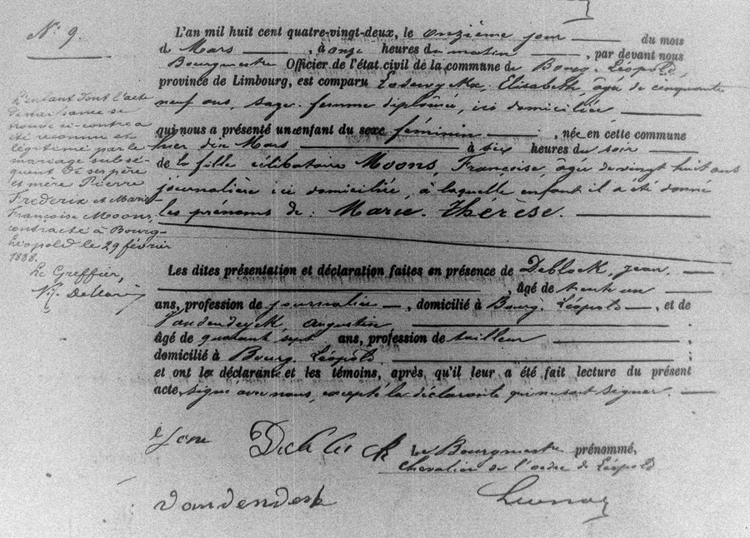 N° 9.
L'an mil huit cent quatre-vingt-deux, le onzième jour du mois
d de Mars, à onze heures du matin, par devant nous
Bourgmestre Officier de l'état civil de la commune de Bourg-Léopold,
province de Limbourg, est comparu Elisabeth, âgée de cinquante
neuf ans, sage-femme diplômée, ici domiciliée
qui nous a présenté un enfant du sexe féminin, née en cette commune
hier dix Mars à six heures du soir
de la fille célibataire Moons, Françoise, âgée de vingt huit ans
journalière ici domiciliée, à laquelle enfant il a été donné
les prénoms de: Marie-Thérèse.
L'enfant dont l'acte
de naissance se
trouve ci-contre a
été reconnu et
légitimé par le
mariage subsé
quent de ses père
et mère Pierre
Frederix et Marie
Françoise Moons,
contracté à Bourg-
Léopold le 29 février
1888.
Le Greffier,
Les dites présentation et déclaration faites en présence de Deblock, jean,
âgé de trent un
ans, profession de journalier, domicilié à Bourg-Léopold, et de
Vandendyck, Augustin
âgé de quarant sept ans, profession de tailleur
domicilié à Bourg-Léopold
et ont le déclarant et les témoins, après, qu'il leur a été fait lecture du présent
acte, signé avec nous, excepté la déclarante qui ne sait signer.
Le Bourgmestre prénommé,
Chevalier de l'ordre de Léopold
Vandendeik